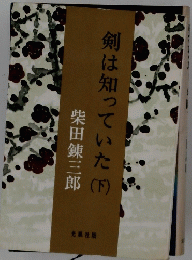 剣は知っていた(下)
柴田錬三郎